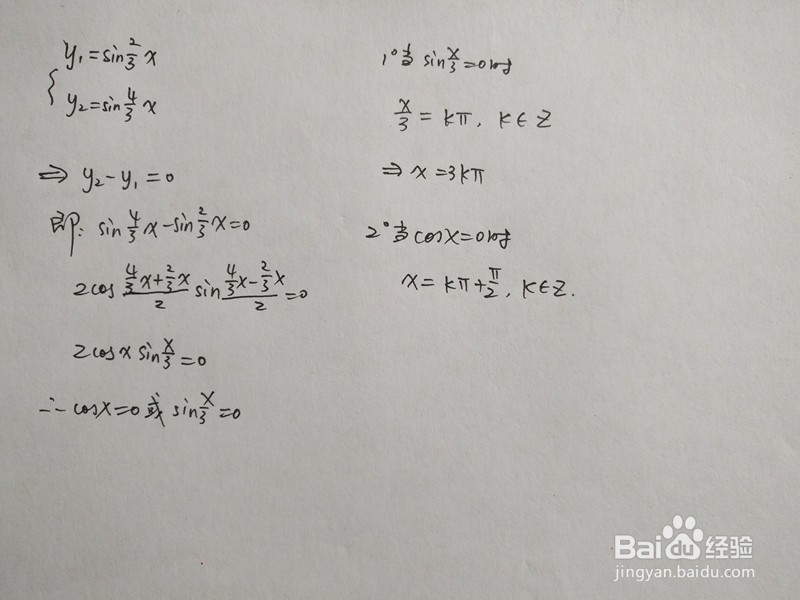 y₁=sin2/3 x
y₂=sin4/3 x
⇒ y₂-y₁=0
即: sin4/3 x-sin2/3 x=0
2cos (4/3 x+2/3 x)/2 sin (4/3 x-2/3 x)/2=0
2cosx sin x/3=0
∴ cosx=0或 sin x/3=0
1°当 sin x/3=0时
x/3=kπ, k∈Z
⇒ x=3kπ
2°当cosx=0时
x=kπ+π/2, k∈Z.
Baidu经验
jingyan.baidu.com